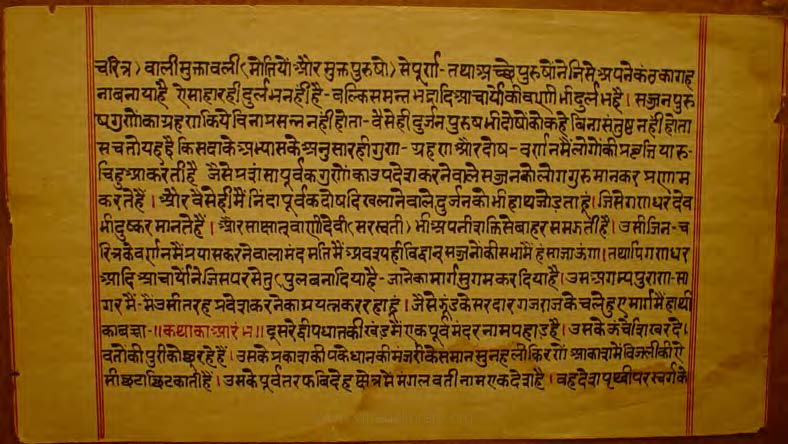 चरित्र) वाली मुक्तावली (मोतियों और मुक्त पुरुषों) से पूर्ण - तथा अच्छे पुरुषोंने जिसे अपने कंठ का गह
ना बनाया है ऐसा हार ही दुर्लभ नहीं है - बल्कि समन्तभद्रादि आचार्यों की वाणी भी दुर्लभ है। सज्जन पुरु
ष गुणोंका ग्रहण किये विना प्रसन्न नहीं होता - वैसे ही दुर्जन पुरुष भी दोषोंको कहे बिना संतुष्ट नहीं होता
सच तो यह है कि सदाके अभ्यासके अनुसार ही गुण - ग्रहण और दोष - वर्णन में लोगों की प्रवृत्तियां रु
चि हुआ करती है जैसे प्रशंसा पूर्वक गुणोंका उपदेश करनेवाले सज्जनको लोग गुरु मानकर प्रणाम
करते हैं। और वैसे ही मैं निंदा पूर्वक दोष दिखलानेवाले दुर्जनको भी हाथ जोड़ता हूं। जिसे गणधर देव
भी दुष्कर मानते हैं। और साक्षात् वाणी देवी (सरस्वती) भी अपनी शक्ति से बाहर समझती है। उसी जिन - च
रित्रके वर्णन में प्रयास करनेवाला मंद मति मैं अवश्य ही विद्वान् सज्जनों की सभा में हंसा जाऊंगा। तथापि गणधर
आदि आचार्योंने जिस पर सेतु (पुल बना दिया है - जाने का मार्ग सुगम कर दिया है। उस अगम्य पुराण - सा
गर में - मैं उसी तरह प्रवेश करनेका प्रयत्न कर रहा हूं। जैसे झुंडके सरदार गजराजके चले हुए मार्ग में हाथी
का बच्चा - ॥कथा का आरंभ॥ दूसरे द्वीप धातकी खंड में एक पूर्व मंदर नाम पहाड़ है। उसके ऊंचे शिखर दे।
वतोंकी पुरी को छू रहे हैं। उसके प्रकाश की पके धान की मंजरी के समान सुनहली किरणें आकाश में बिजली की ऐ
सी छटा छिटकाती हैं। उसके पूर्व तरफ बिदेह क्षेत्र में मंगलवती नाम एक देश है। वह देश पृथ्वी पर स्वर्ग के